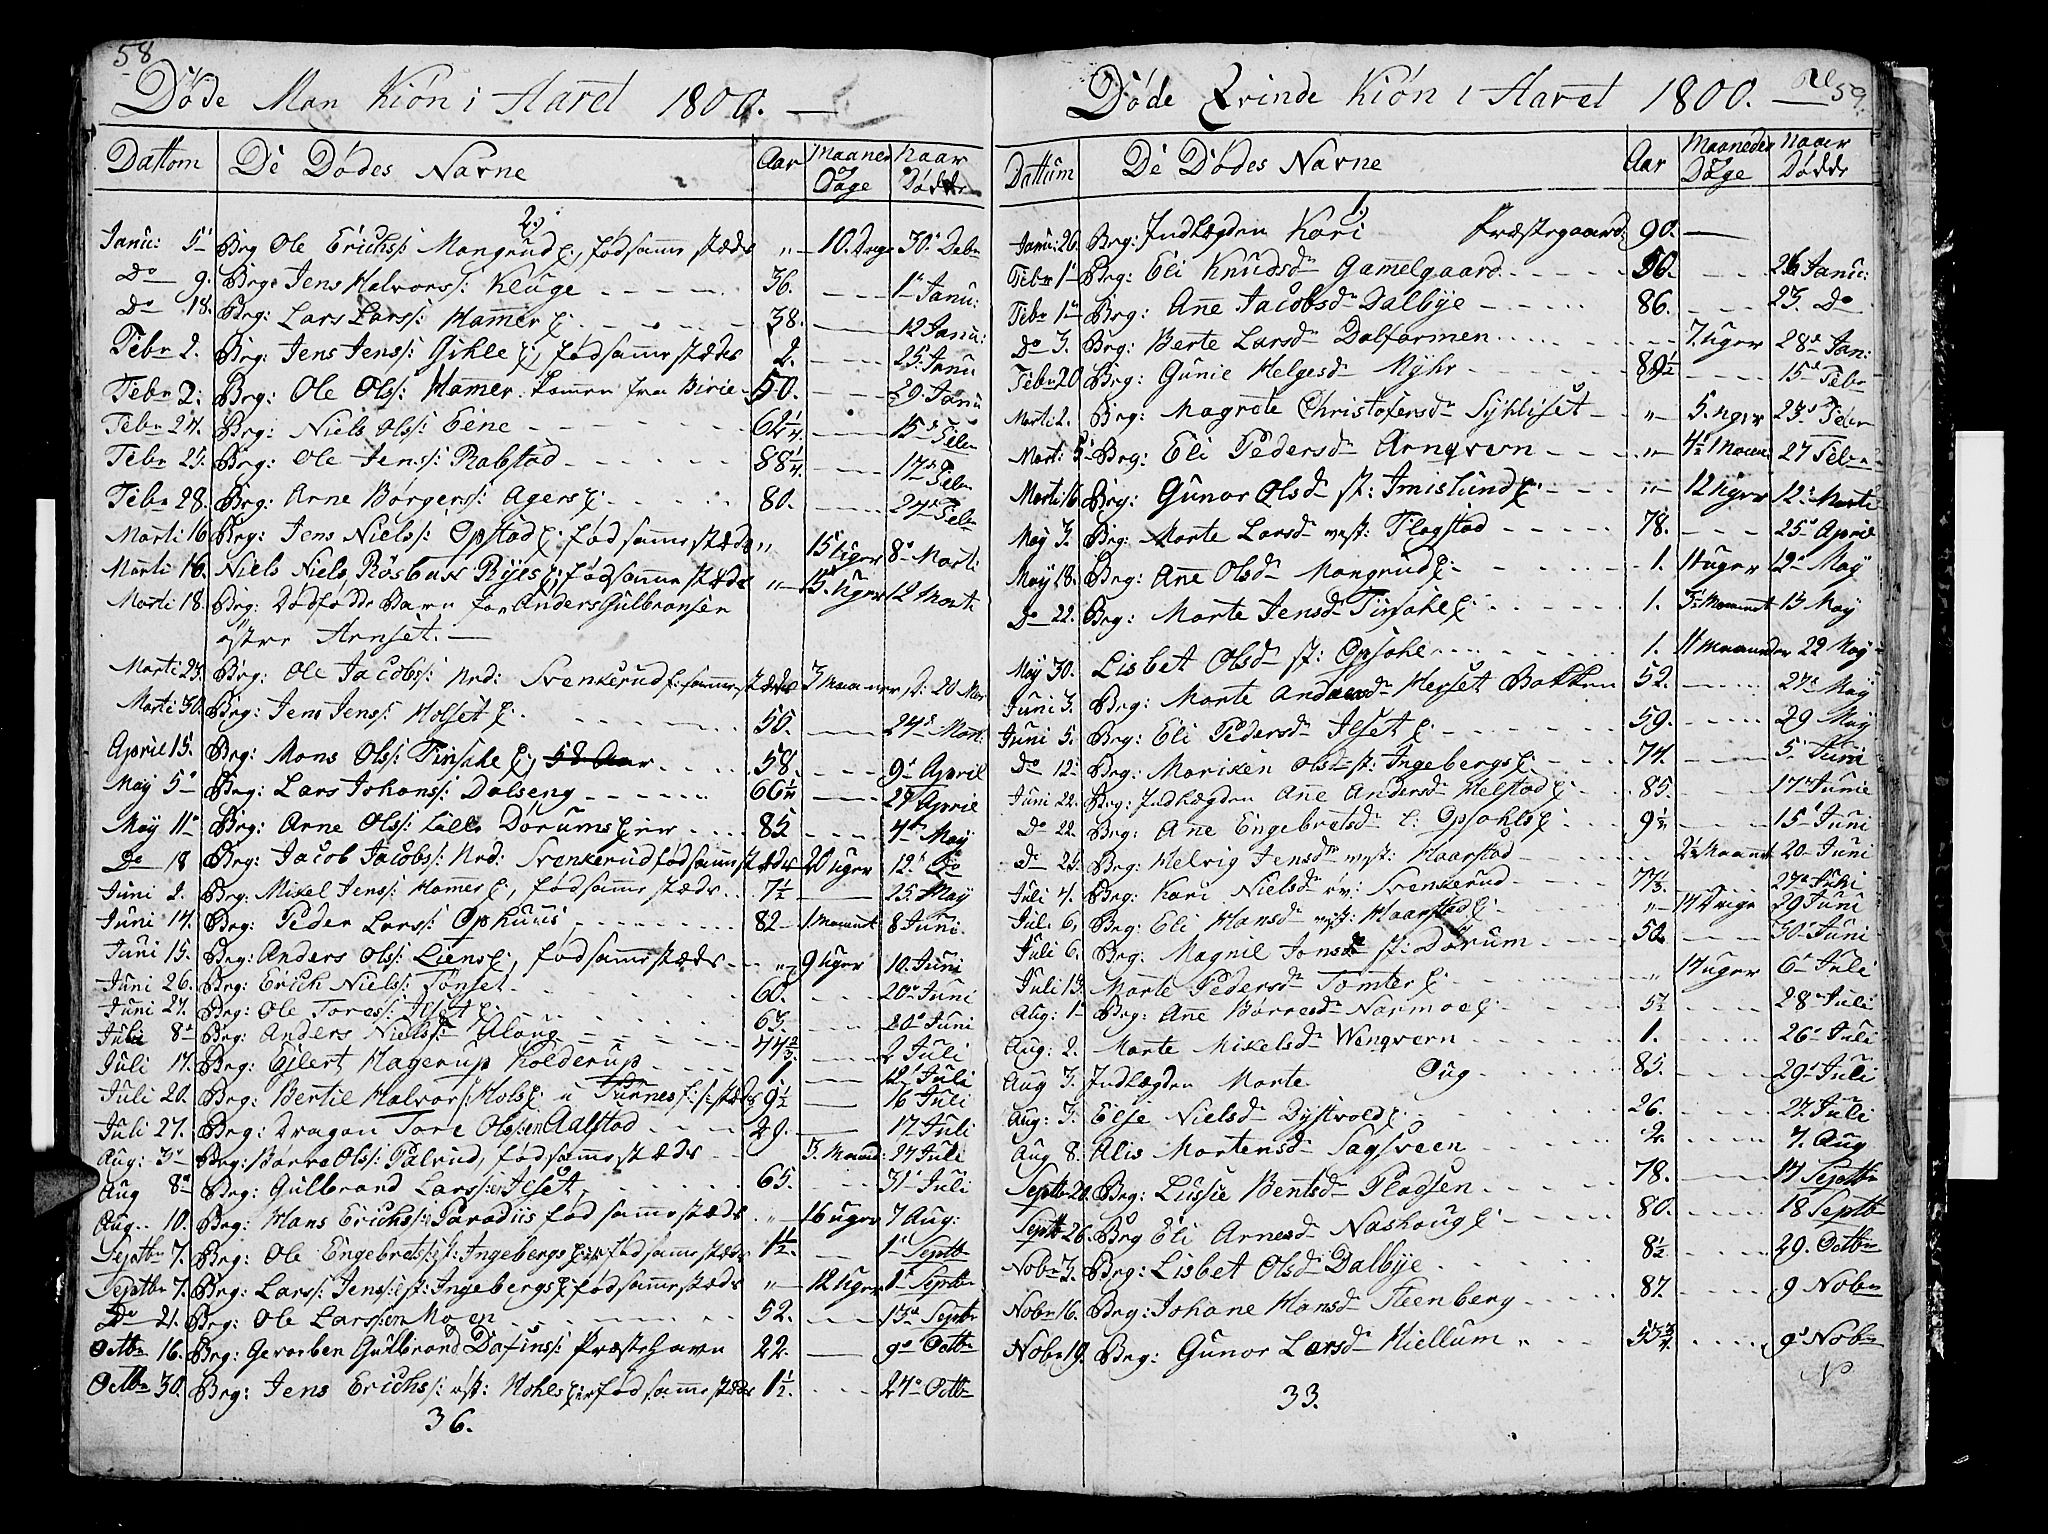 58
Døde Man Kiön i Aaret 1800.
Dattom De Dødes Navne Aar Maaner Dage Naar Dødde
2)
Janu: 5 Brg Ole Erichs: Mangrud E:, fød samme stæds " 10. Dage 30 Debr
Do 9. Brg: Jens Halvors: Kluge 36. 1 Janu:
Do 18. Brg: Lars Lars: Hamer E: 38. 12 Janu:
Febr 2. Brg: Jens Jens: Gihle E, fød samme stæds 2. 25. Janu
Febr 2: Brg: Ole Ols: Hamer kommen fra Birie 50. 29. Janu
Febr 24. Brg: Niels Ols: Eene 62 1/4. 15 Febr
Febr 25. Brg: Ole Jens: Rabstad 88 1/4 17 Febr
Febr 28. Brg: Arne Børgers: Agers E: 80. 24 Febr
Marti 16 Brg: Jens Niels: Opstad E: fød samme stæds " 15 uger 8 Marti
Marti 16. Niels Niels, Røsbax Ryes E; fød samme stæds " 15 Uger 12 Mart:
Marti 18. Brg: Dødfødde Barn for Anders Gulbransen
østre Arnset.
Marti 23. Brg: Ole Jacobs: Nrd: Svenkerud f: samme stæds 3 Maaner d: 20 Mar
Marti 30. Brg: Jens Jens: Holset E: 55. 24 Mart:
April 15. Brg: Mons Ols: Finsahl E:, 58 Aar 58. 9 April
May 5 Brg: Lars Johans: Dalseng 66 1/4 29 April
May 11 Brg: Arne Ols: Lille Dørums Eier 85 4 May
Do 18 Brg: Jacob Jacobs: Nrd: Svenkerud fød samme stæds 20 Uger 12 Do
Juni 2. Brg: Mikel Jens: Hamer E:, fød samme stæds 7 1/2 25. May
Juni 14. Brg: Peder Lars: Ophuus 82 1. Maanet 8 Juni
Juni 15. Brg: Anders Ols: Liens E:, fød samme stæds " 9 Uger 10. Juni
Juni 26. Brg: Erich Niels: Tønset 60. 20 Juni
Juni 27. Brg: Ole Tores: Ilset E: 63. 20 Juni
Juli 8 Brg: Anders Niels: Aloug 44 2/3. 2 Juli
Juli 14. Brg: Ejlert Hagerup Kolderup 1 12 Juli
Juli 20. Brg: Bertil Halvor: Hols E: u Furnes f: s: stæds 9 1/2 16 Juli
Juli 27. Brg: Dragon Tore Olsen Aalstad 29. 17 Juli
Aug: 3 Brg: Børre Ols: Palrud, fød samme stæds 3. Maaned: 27 Juli
Aug 8 Brg: Gulbrand Larssen Ilset, 65. 31 Juli
Aug. 10. Brg: Hans Erichs: Paradiis fød samme stæds " 16 uger 7 Aug:
Septbr 7. Brg: Ole Engebrets: st: Ingebergs Eier fød samme stæds 1 1/2. 1 Septb
Septbr 7. Brg: Lars: Jens: st: Ingebergs E: fød samme stæds " 12 Uger 1 Septbr
Do 21. Brg: Ole Larssen Moen 52. 13 Septb
Octbr 16. Brg: Gevorben Gulbrand Dafins: Præstehavn 22. 9 Octb
Octbr 30. Brg: Jens Erichs: øst: Hohls Eier fød samme stæds 1 1/2. 24 Octb
36.
59.
Døde Qvinde Kiön i Aaret 1800.
Dattum De Dødes Navne Aar Maaneder Dage Naar Dødde
1)
Janu: 26. Brg: Indlægden Kari Præstegaard: 90.
Febr 1 Brg: Eli Knudsdr Gamelgaard 50. 26 Janu:
Febr 1 Brg: Ane Jacobsdr Dalbye 86. 23. Do
Do 3. Brg: Berte Larsdr Dalfarmen 7. Uger 28 Jan:
Febr 20 Brg: Gunie Helgesdr Myhr 89 1/2 15 Febr
Marti 2. Brg: Magrete Christofersdr Sykliset " 5. uger 23 Febr
Mart: 5 Brg: Eli Pedersdr Arnqvern " 4 1/2 Maan: 27 Febr
Marti 16 Brg: Gunor Olsdr st: Imislund E: " 12 Uger 12 Marti
May 3. Brg: Marte Larsdr vest: Flagstad 78. 25 April
May 18. Brg: Ane Olsdr Mangrud E: 1. 11 uger 12 May
Do 22. Brg: Marte Jensdr Finsahl E: 1. 3 Maanet 15 May
May 30. Lisbet Olsdr st: Opsahl 1. 11 maaneder 22 May
Juni 3. Brg: Marte Andersdr Herset Bakken 52. 27 May
Juni 5. Brg: Eli Pedersdr Ilset E: 59. 29 May
Do 12 Brg: Mariken Olsdr st: Ingebergs E: 74. 5 Juni
Juni 22. Brg: Indlægden Ane Andersdr Helstad E: 85. 17 Junie
Do 22. Brg: Ane Engebretsdr L: Opsahls E: 9 1/2. 15 Juni
Do 24. Brg: Helvig Jensdr vest: Haarstad 2 1/2 Maanet 20 Juni
Juli 4. Brg: Kari Nielsdr øv: Svenkerud 77 1/3. 27 Juli
Juli 6, Brg: Eli Hansdr vest: Haarstad E: " 14 Dage 29 Juni
Juli 6. Brg: Magnil Jonsdr st: Dørum 50. 30 Juni
Juli 13. Marte Pedersdr Tomter E: " 17 uger 6 Juli
Aug: 1 Brg: Ane Børresdr Narmoe E: 5 1/2 28 Juli
Aug: 2. Marte Mikelsdr Wenqvern 1. 26 Juli
Aug 3. Indlægden Marte Oug 85. 29 Juli
Aug: 3. Else Nielsdr Dystvold E: 26. 27. Juli
Aug 8. Alis Mortensdr Sagsveen 2. 7. Aug
Septbr 20. Brg: Lussie Bentsdr Pladsen 78. 17 Septbr
Septb 26. Brg Eli Arnesdr Nashoug E: 80. 18 Septb
Nobr 3. Brg: Lisbet Olsdr Dalbye 8 1/2. 29. Octbr
Nobr 16. Brg: Johane Hansdr Steenberg 87. 9 Nobr
Nobr 19. Brg: Gunor Larsdr Hiellum 53 3/4. 9 Nobr
33.